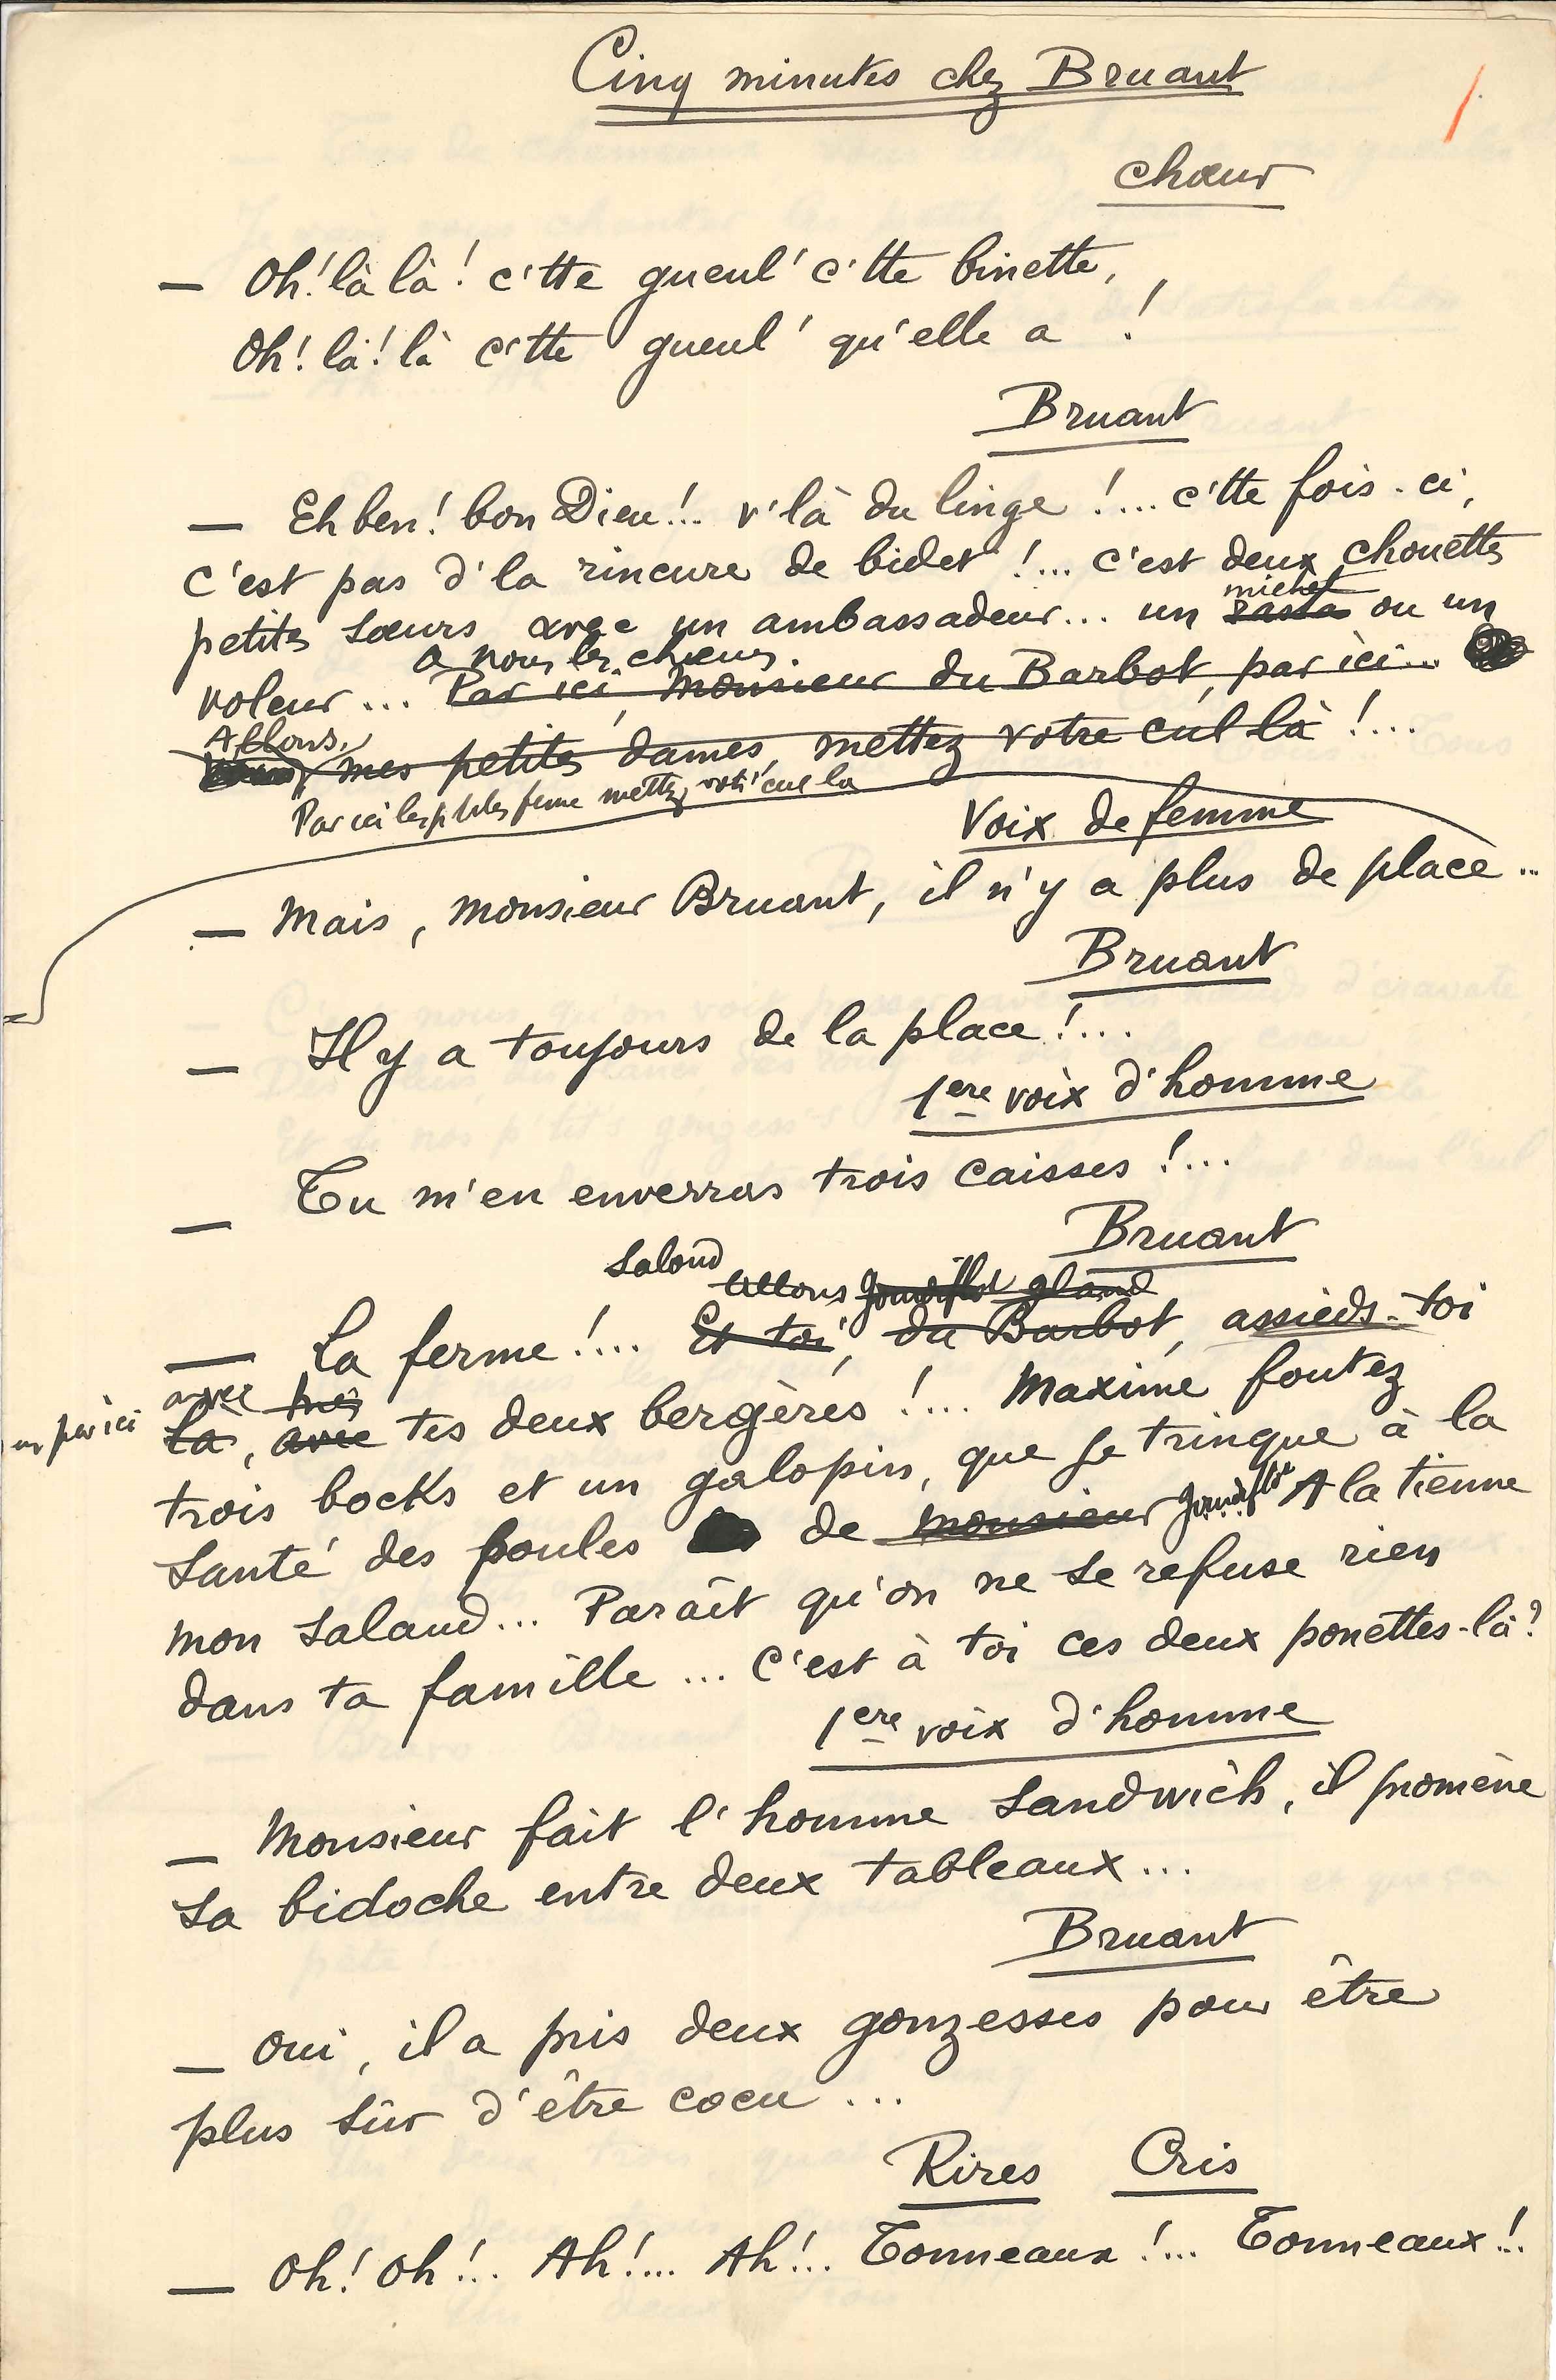 Cinq minutes chez Bruant
chœur
— Oh! là là! c'tte gueul' c'tte binette,
Oh! là! là c'tte gueul' qu'elle a !
Bruant
— Eh ben! bon Dieu!.. v'là du linge !... c'tte fois-ci,
c'est pas d'la rinçure de bidet !... c'est deux chouettes
michet
petites sœurs avec un ambassadeur... un rasta ou un
a nous les chœurs.
voleur... Par ici, Monsieur du Barbot, par ici...
Allons,
mes petites dames, mettez votre cul là !...
Par ici les p'tites femme mettez votr' cul la
Voix de femme
— Mais, monsieur Bruant, il n'y a plus de place...
Bruant
— Il y a toujours de la place !...
1ere voix d'homme
— Tu m'en enverras trois caisses !...
Bruant
Salaud Allons gland
— La ferme !... Et toi, du Barbot, assieds-toi
avec
par ici là, avec tes deux bergères !... Maxime foutez
trois bocks et un galopin, que je trinque à la
santé des poules de monsieur A la tienne
mon salaud... Paraît qu'on ne se refuse rien
dans ta famille... C'est à toi ces deux ponettes-là ?
1ere voix d'homme
— Monsieur fait l'homme sandwich, il promène
sa bidoche entre deux tableaux...
Bruant
— Oui, il a pris deux gonzesses pour être
plus sûr d'être cocu ...
Rires Cris
— Oh! Oh!.. Ah!... Ah!.. Tonneaux !... Tonneaux !..